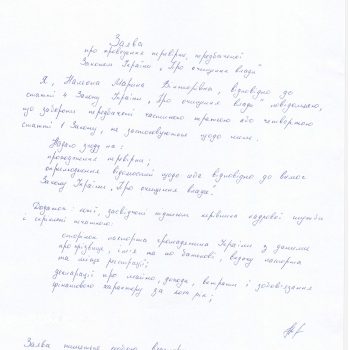 Заява
про проведення перевірки, передбаченої
Законом України „Про очищення влади"
Я, Марина Вікторівна, відповідно до
статті 4 Закону України „Про очищення влади" повідомляю,
що заборони передбачені частиною третьою або четвертою
статті 1 Закону, не застосовуються щодо мене.
Надаю згоду на:
проходження перевірки;
оприлюднення відомостей щодо себе відповідно до вимог
Закону України „Про очищення влади".
Додаток: копії, засвідчені підписом керівника кадрової служби
і скріплені печаткою:
сторінок паспорта громадянина України з даними
про прізвище, ім'я та по батькові, видачу паспорта
та місце реєстрації;
декларації про майно, доходи, витрати і зобов'язання
фінансового характеру за рік;
Заява